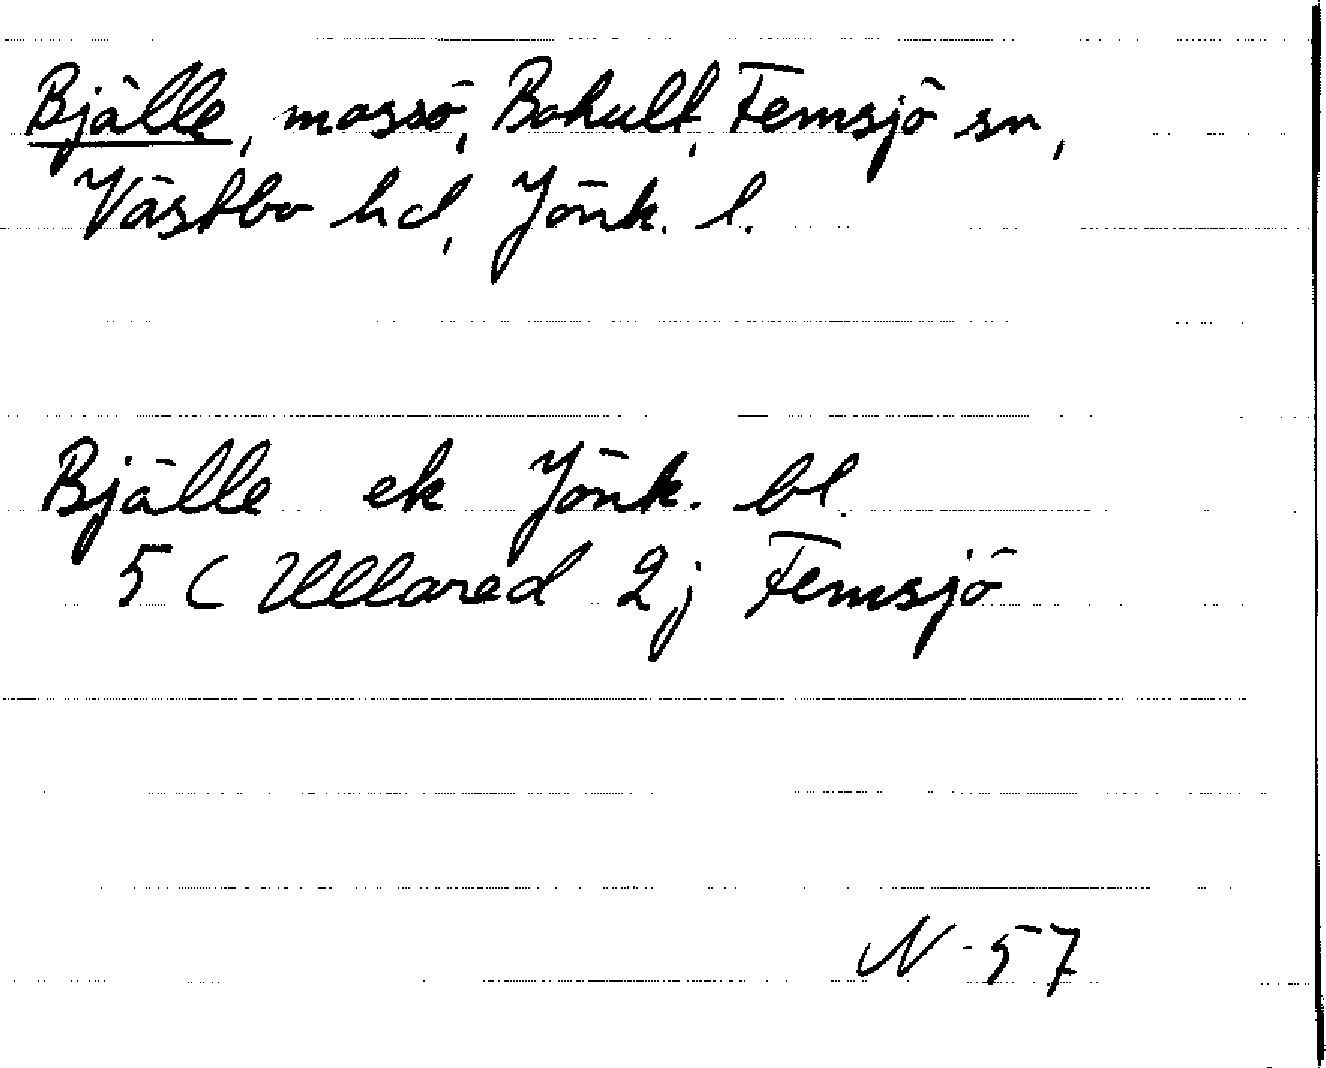 Bjälle, mossö, Bohult, Femsjö sn,
Västbo hd, Jönk. l.
Bjälle ek Jönk. bl.
5 C Ullared 2j Femsjö
N-57